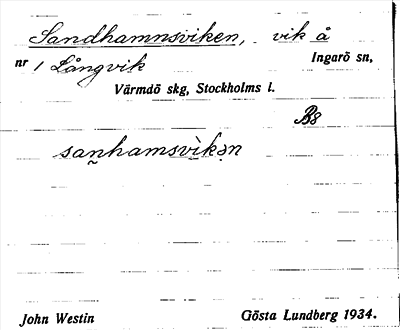 Sandhamnsviken, vik å
nr 1 Långvik Ingarö sn,
Värmdö skg, Stockholms l.
B8
san̰hamsvìkən
John Westin Gösta Lundberg 1934.